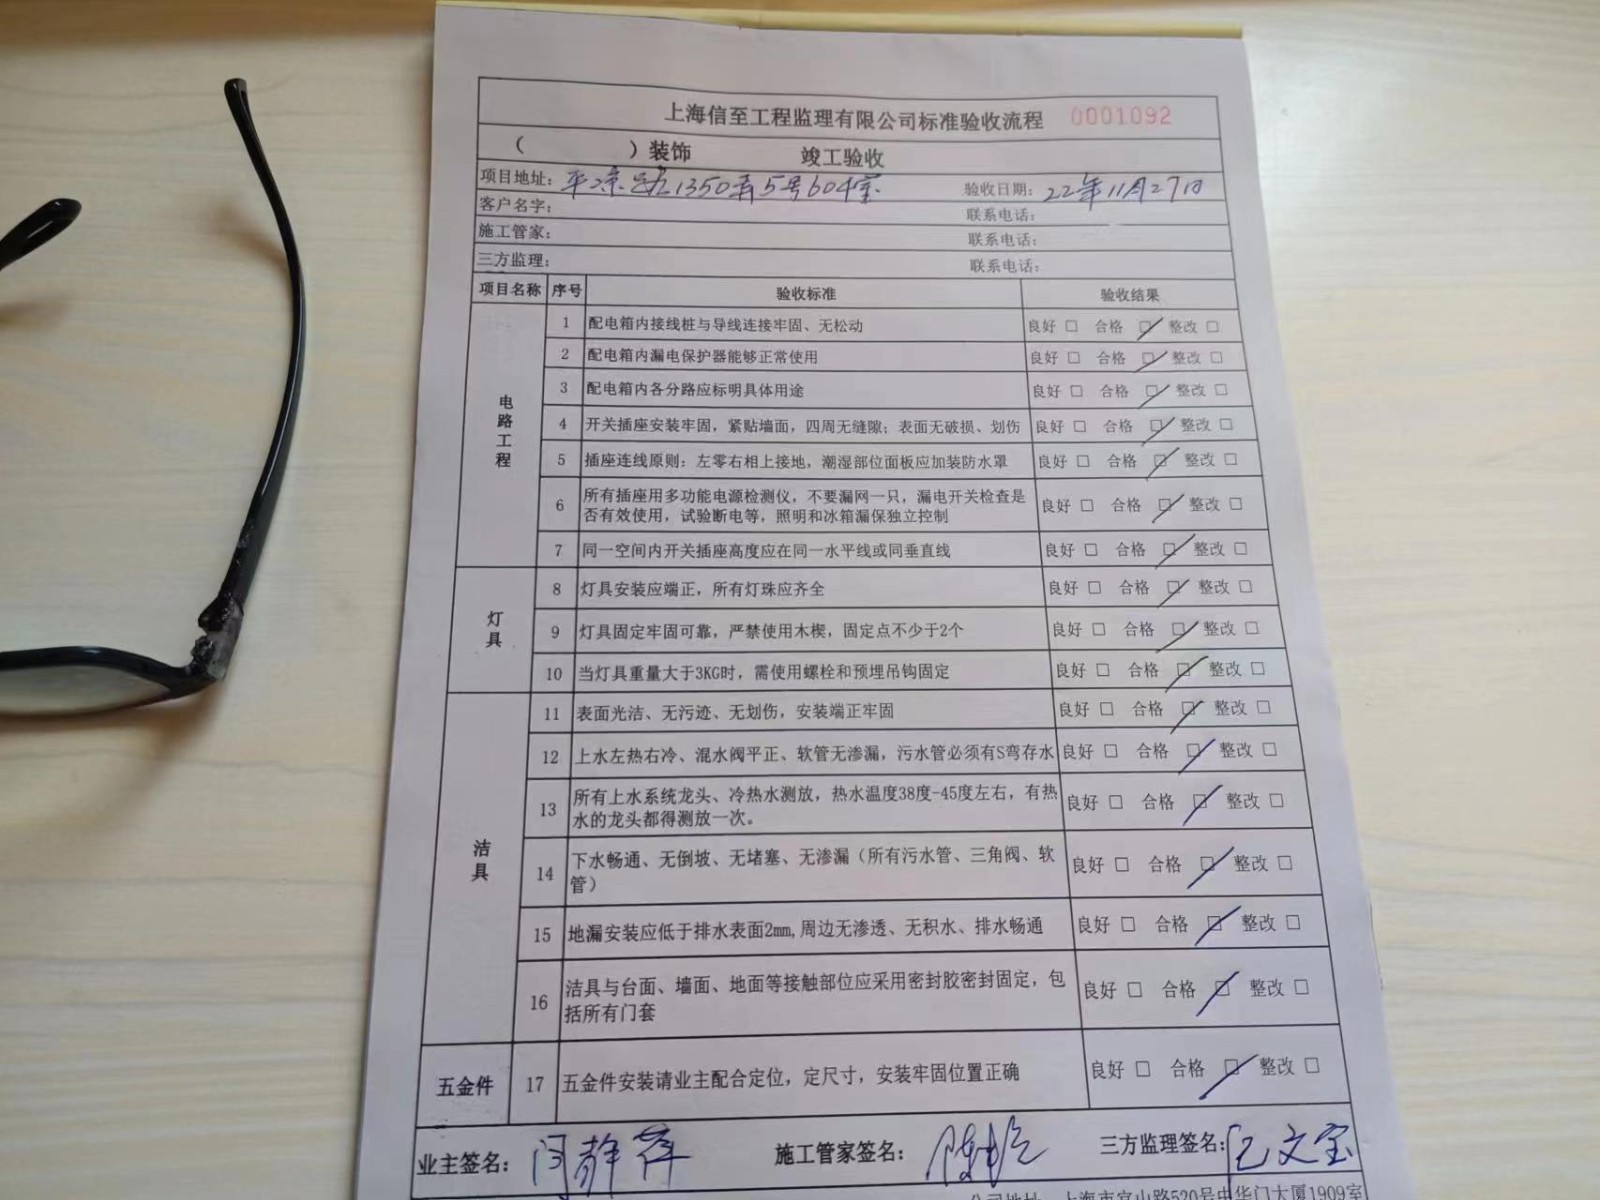 上海信至工程监理有限公司标准验收流程 0001092
（ ）装饰 竣工验收
项目地址：平凉路1350弄5号604室 验收日期：22年11月27日
客户名字： 联系电话：
施工管家： 联系电话：
三方监理： 联系电话：
项目名称 序号 验收标准 验收结果
电路工程
1 配电箱内接线桩与导线连接牢固、无松动 良好 □ 合格 ☑ 整改 □
2 配电箱内漏电保护器能够正常使用 良好 □ 合格 ☑ 整改 □
3 配电箱内各分路应标明具体用途 良好 □ 合格 ☑ 整改 □
4 开关插座安装牢固，紧贴墙面，四周无缝隙；表面无破损、划伤 良好 □ 合格 ☑ 整改 □
5 插座连线原则：左零右相上接地，潮湿部位面板应加装防水罩 良好 □ 合格 ☑ 整改 □
6 所有插座用多功能电源检测仪，不要漏网一只，漏电开关检查是
否有效使用，试验断电等，照明和冰箱漏保独立控制 良好 □ 合格 ☑ 整改 □
7 同一空间内开关插座高度应在同一水平线或同垂直线 良好 □ 合格 ☑ 整改 □
灯具
8 灯具安装应端正，所有灯珠应齐全 良好 □ 合格 ☑ 整改 □
9 灯具固定牢固可靠，严禁使用木楔，固定点不少于2个 良好 □ 合格 ☑ 整改 □
10 当灯具重量大于3KG时，需使用螺栓和预埋吊钩固定 良好 □ 合格 ☑ 整改 □
洁具
11 表面光洁、无污迹、无划伤，安装端正牢固 良好 □ 合格 ☑ 整改 □
12 上水左热右冷、混水阀平正、软管无渗漏，污水管必须有S弯存水 良好 □ 合格 ☑ 整改 □
13 所有上水系统龙头、冷热水测放，热水温度38度-45度左右，有热
水的龙头都得测放一次。 良好 □ 合格 ☑ 整改 □
14 下水畅通、无倒坡、无堵塞、无渗漏（所有污水管、三角阀、软
管） 良好 □ 合格 ☑ 整改 □
15 地漏安装应低于排水表面2mm,周边无渗透、无积水、排水畅通 良好 □ 合格 ☑ 整改 □
16 洁具与台面、墙面、地面等接触部位应采用密封胶密封固定，包
括所有门套 良好 □ 合格 ☑ 整改 □
五金件
17 五金件安装请业主配合定位，定尺寸，安装牢固位置正确 良好 □ 合格 ☑ 整改 □
业主签名：闵静萍 施工管家签名： 三方监理签名：文宝
公司地址：上海市宜山路520号中华门大厦1909室